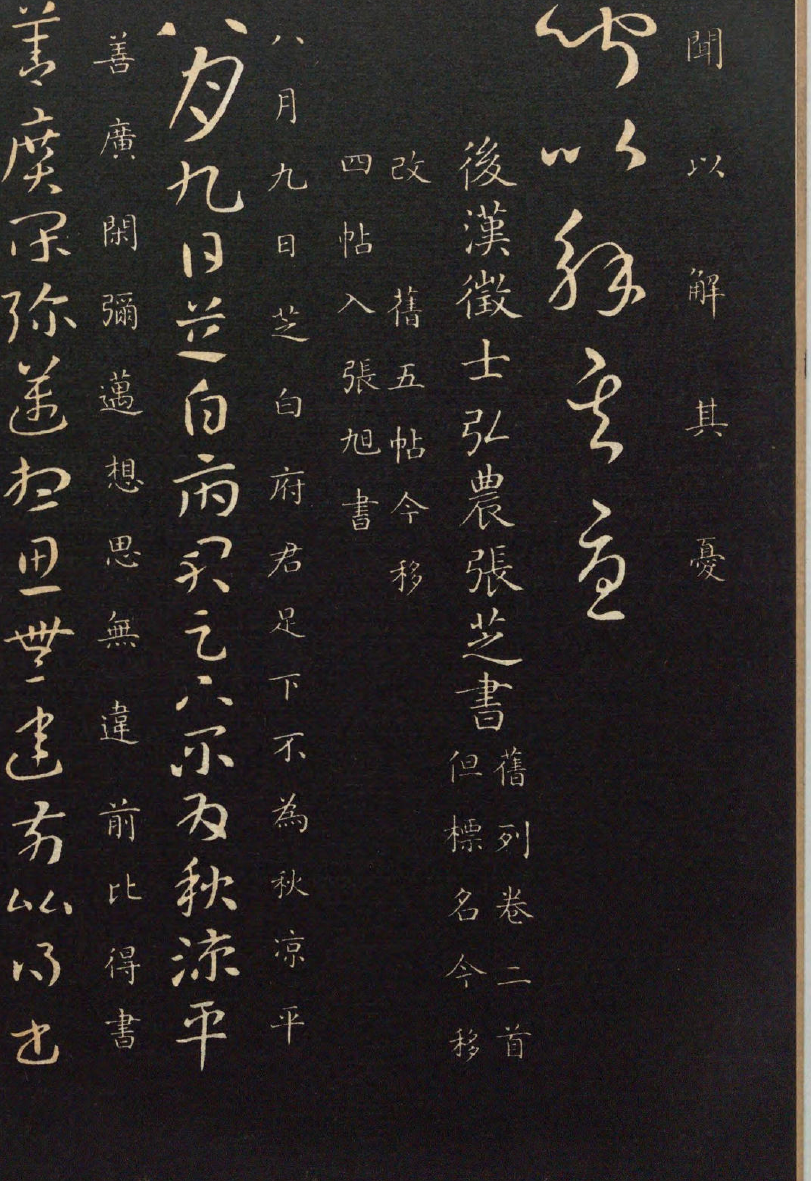 聞以解其憂
聞以解其憂
後漢徵士弘農張芝書
舊列卷二首
但標名今移
改 舊五帖今移
四帖入張旭書
八月九日芝白府君足下不為秋凉平
八月九日芝白府君足下不為秋涼平
善廣閑彌邁想思無違前比得書
善廣閑彌邁想思無違前比得書